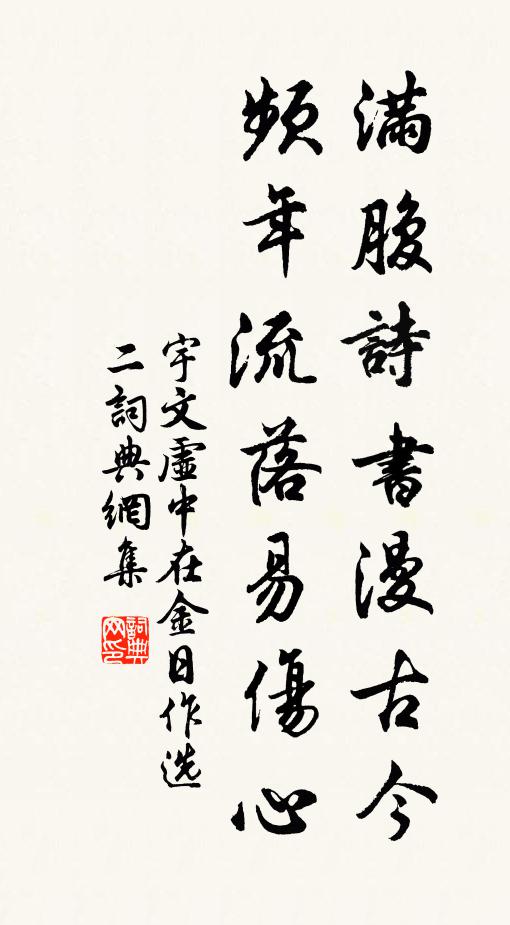 滿腹詩書漫古今
頻年流落易傷心
宇文虛中在金日作选
二詞典網集
詞典
网印